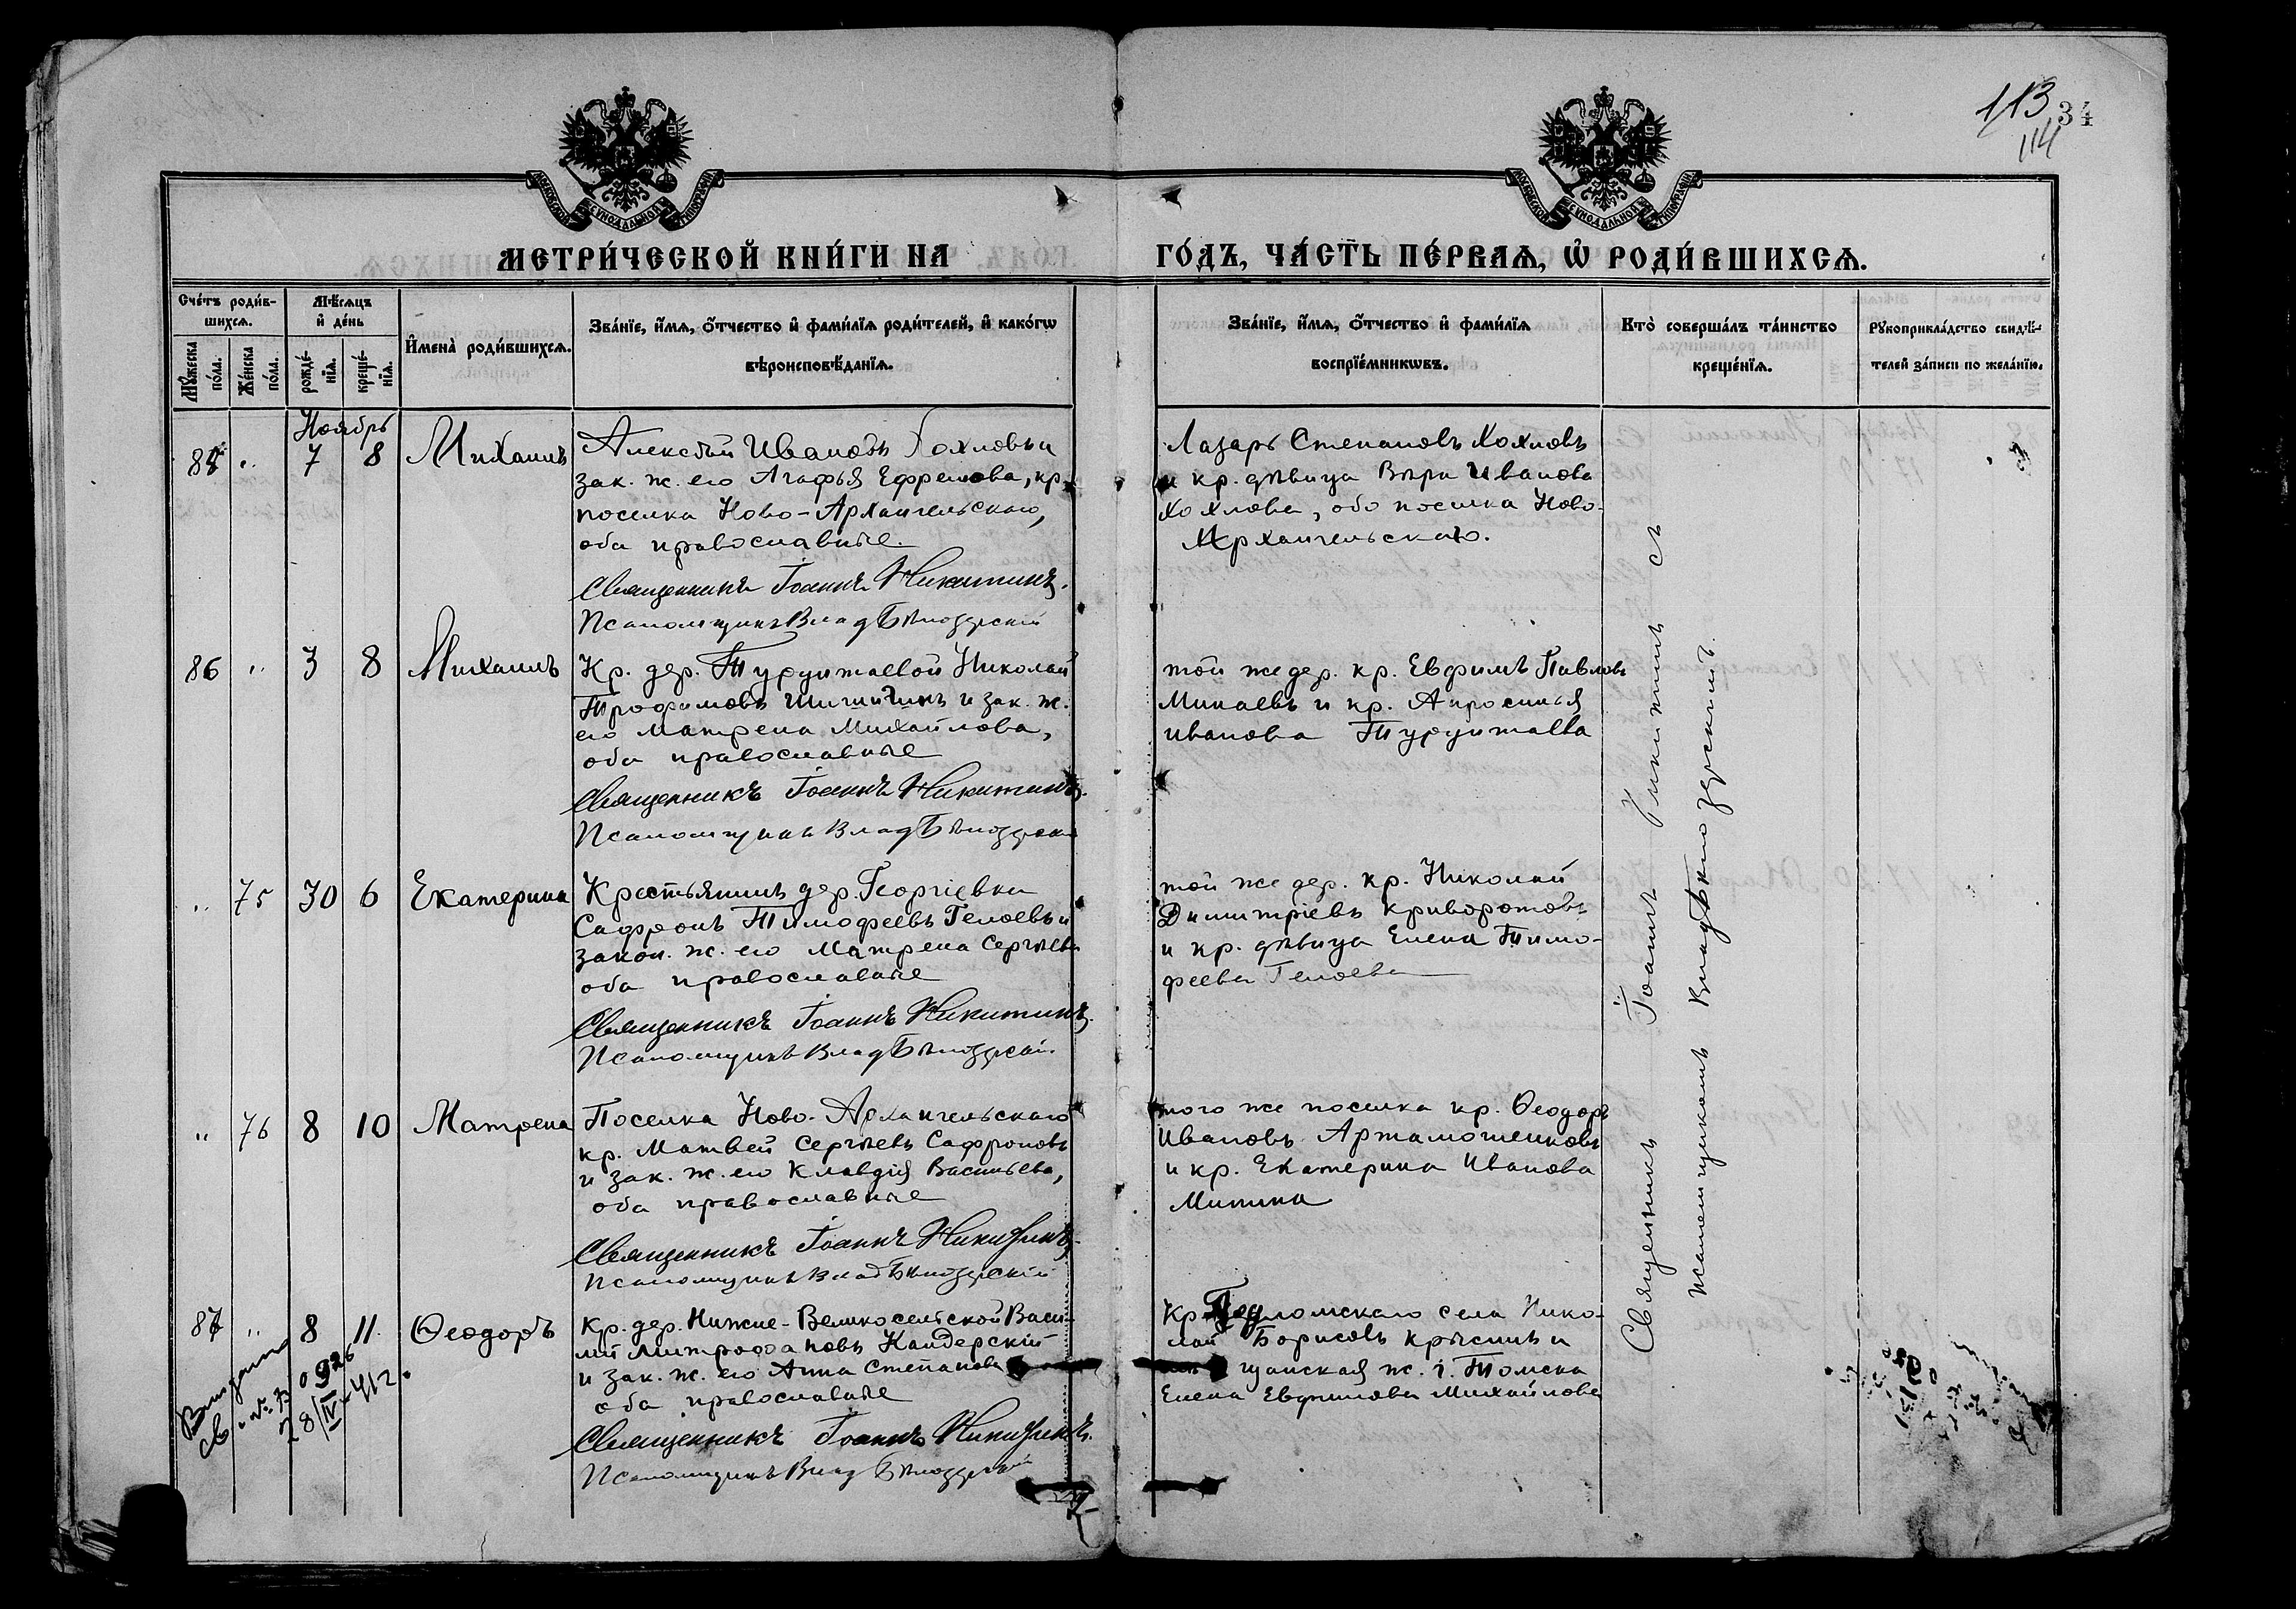 113
34
114
МОСКОВСКОЙ СѴНОДАЛЬНОЙ ТИПОГРАФІИ
МОСКОВСКОЙ СѴНОДАЛЬНОЙ ТИПОГРАФІИ
МЕТРИ́ЧЕСКОЙ КНИ́ГИ НА ГО́ДЪ, ЧА́СТЬ ПЕ́РВАѦ, Ѡ҆ РОДИ́ВШИХСѦ.
Сче́тъ роди́в-
шихсѧ.
Мꙋ́жеска по́ла.
Же́нска по́ла.
Мѣ́сѧцъ
и҆ де́нь
рожде́-нїѧ.
креще́-нїѧ.
И҆мена̀ роди́вшихсѧ.
Зва́нїе, и҆́мѧ, ѻ҆́тчество и҆ фами́лїѧ роди́телей, и҆ како́гѡ
вѣроисповѣ́данїѧ.
Зва́нїе, и҆́мѧ, ѻ҆́тчество и҆ фами́лїѧ
воспрїе́мникѡвъ.
Кто̀ соверша́лъ та́инство
креще́нїѧ.
Рꙋкоприкла́дство свидѣ́-
телей за́писи по жела́нїю.
Ноябрь
85 " 7 8 Михаилъ
Алексѣй Ивановъ Хохловъ и
зак. ж. его Агафья Ефремова, кр.
поселка Ново-Архангельскаго,
оба православные.
Священникъ Іоаннъ Никитинъ.
Псаломщикъ Влад Бѣлозерскій
Лазарь Степановъ Хохловъ
и кр. дѣвица Вѣра Иванова
Хохлова, обо поселка Ново-
Архангельскаго.
86 " 3 8 Михаилъ
Кр. дер. Турунтаевой Николай
Трофимовъ Шишигинъ и зак. ж.
его Матрена Михайлова,
оба православные
Священникъ Іоаннъ Никитинъ.
Псаломщикъ Влад Бѣлозерскій
той же дер. кр. Евфимъ Павловъ
Минаевъ и кр. Апросинья
Иванова Турунтаева
" 75 30 6 Екатерина
Крестьянинъ дер. Георгіевки
Сафронъ Тимофеевъ Гелоевъ и
закон. ж. его Матрена Сергѣева
оба православные
Священникъ Іоаннъ Никитинъ.
Псаломщикъ Влад Бѣлозерскій
той же дер. кр. Николай
Димитріевъ Криворотовъ
и кр. дѣвица Елена Тимо-
феева Гелоева
" 76 8 10 Матрена
Поселка Ново-Архангельскаго
кр. Матвей Сергѣевъ Сафроновъ
и зак. ж. его Клавдія Васильева,
оба православные
Священникъ Іоаннъ Никитинъ.
Псаломщикъ Влад Бѣлозерскій
того же поселка кр. Ѳеодоръ
Ивановъ Артамошенковъ
и кр. Екатерина Иванова
Митина
87 " 8 11 Ѳеодоръ
Кр. дер. Нижне-Великосельской Васи-
лій Митрофановъ Кандерскій
и зак. ж. его Анна Степанова
оба православные
Священникъ Іоаннъ Никитинъ.
Псаломщикъ Влад Бѣлозерскій
Кр. села Нико-
лай Борисовъ и
щанская ж. г. Томска
Елена Евфимова Михайлова
Священникъ Іоаннъ Никитинъ съ
псаломщикомъ Владѣлозерскимъ.
28/IV-41 г.